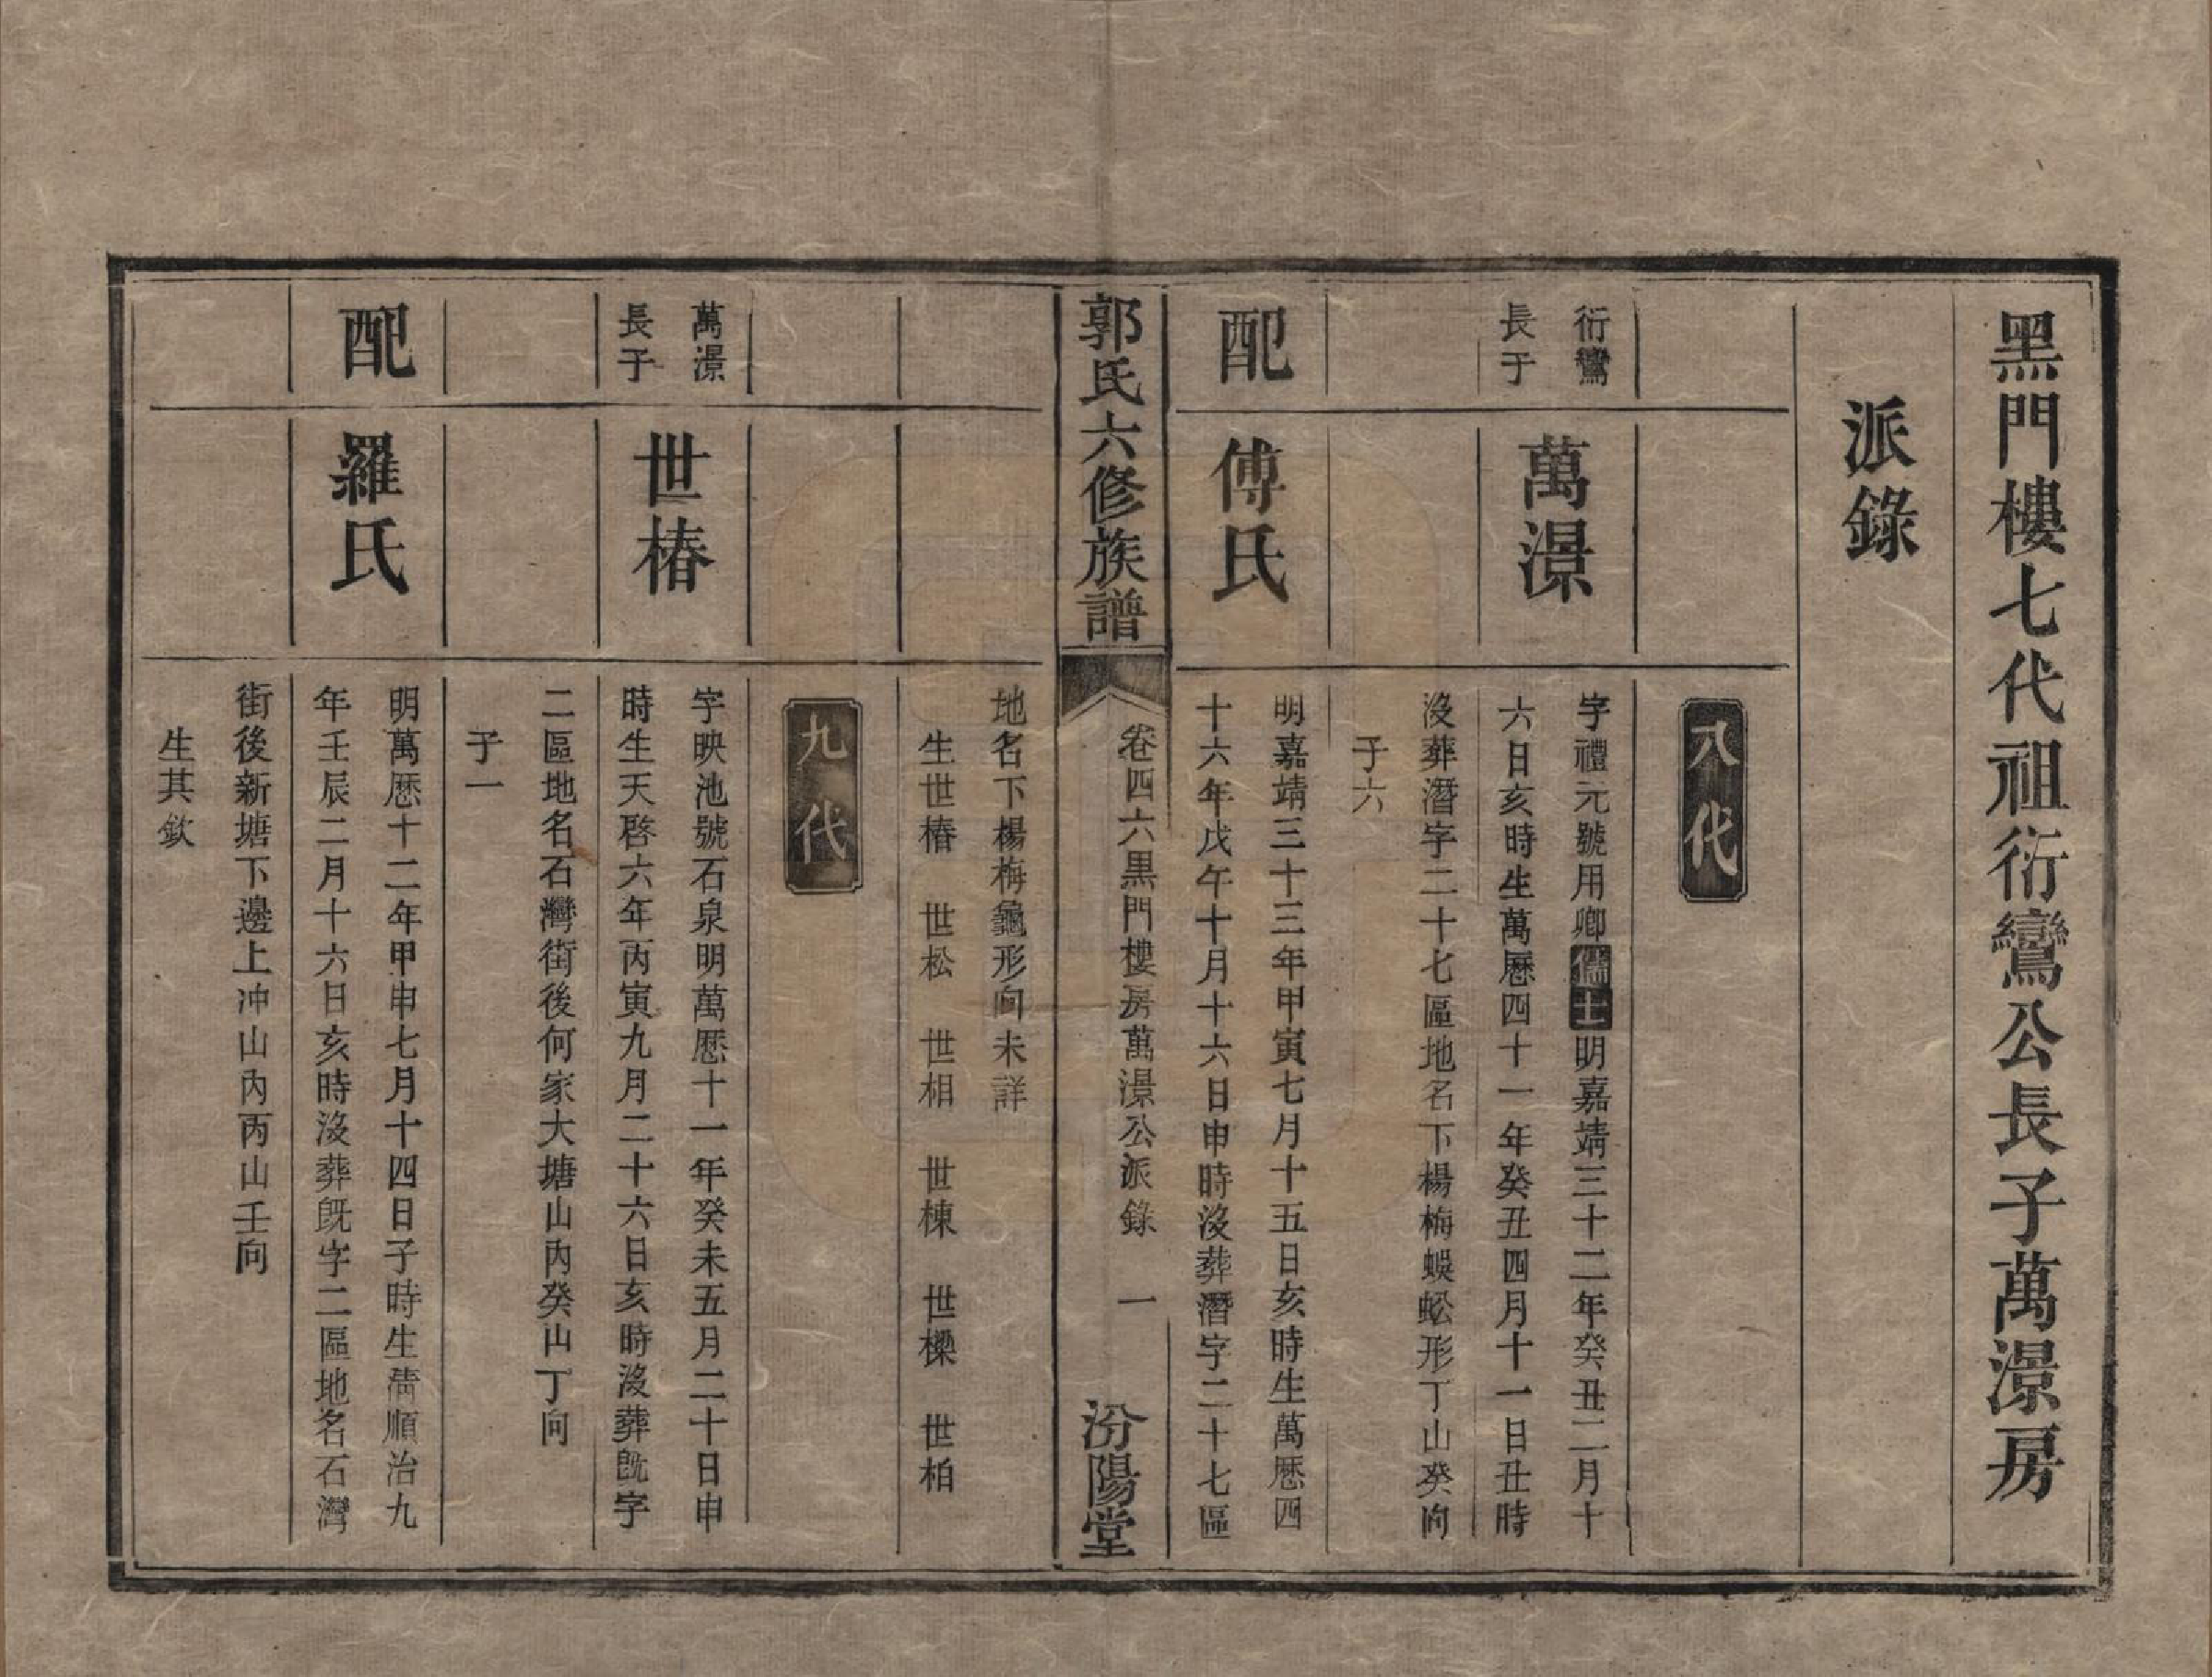 黑門樓七代祖衍鸞公長子萬澋房
派錄
八代
衍鸞
長子
萬澋
字禮元號用卿儒士明嘉靖三十二年癸丑二月十
六日亥時生萬曆四十一年癸丑四月十一日丑時
沒葬潛字二十七區地名下楊梅蜈蚣形丁山癸向
子六
配
傅氏
明嘉靖三十三年甲寅七月十五日亥時生萬曆四
十六年戊午十月十六日申時沒葬潛字二十七區
郭氏六修族譜
卷四六黑門樓房萬澋公派錄
一
汾陽堂
地名下楊梅龜形向未詳
生世椿 世松 世相 世棟 世樑 世柏
九代
萬澋
長子
世椿
字映池號石泉明萬曆十一年癸未五月二十日申
時生天啓六年丙寅九月二十六日亥時沒葬旣字
二區地名石灣街後何家大塘山內癸山丁向
子一
配
羅氏
明萬曆十二年甲申七月十四日子時生淸順治九
年壬辰二月十六日亥時沒葬旣字二區地名石灣
街後新塘下邊上冲山內丙山壬向
生其欽